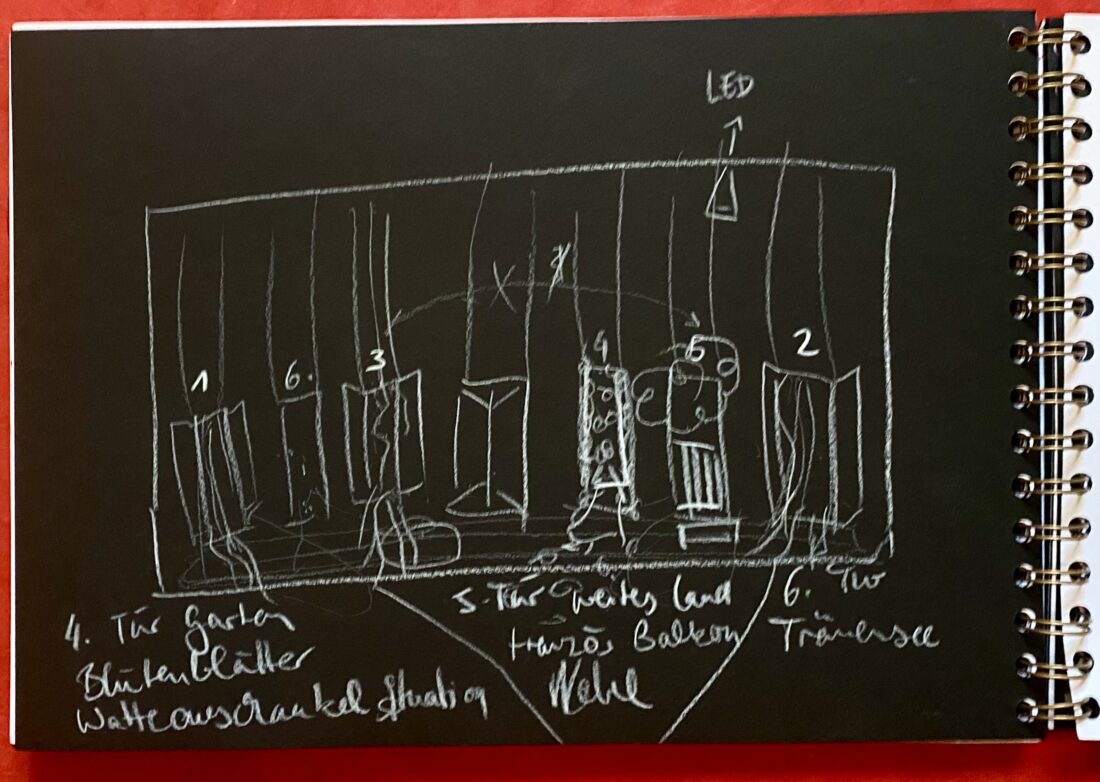 LED
X
1 6. 3 4 5 2
4. Tür Garten
Blütenblätter
Watteauschaukel Situation
5. Tür weites Land
französ Balkon
Nebel
6. Tür
Tränensee